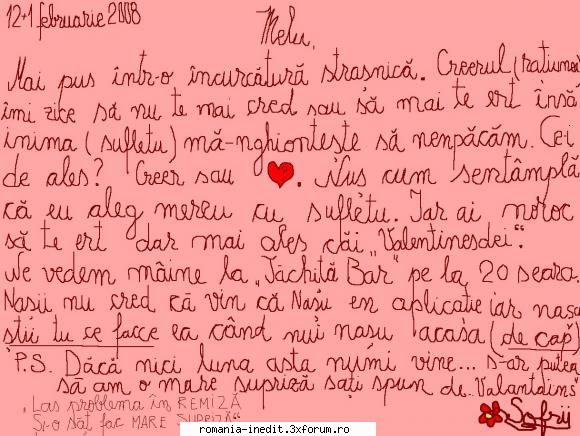 12+1 februarie 2008
Melu,
Mai pus într-o încurcătură strasnică. Creerul (ratiunea)
îmi zice să nu te mai cred sau să mai te ert însă
inima (sufletu) mă-nghionteste să nenpăcăm. Cei
de ales? Creer sau ❤. Nus cum sentâmplă
că eu aleg mereu cu sufletu. Iar ai noroc
să te ert dar mai ales căi „Valentinesdei".
Ne vedem mâine la „Jăchită Bar" pe la 20 seara.
Nasii nu cred că vin că Nasu en aplicatie iar nasa
stii tu ce facce ea când nui nasu acasa (de cap)
P.S. Dăcă nici luna asta numi vine... s-ar putea
să am o mare supriză sati spun de „Valantains"
„Las problema în REMIZĂ
Si-o săt fac MARE SUPRIZĂ"
Sofrij
romania-inedit.3xforum.ro